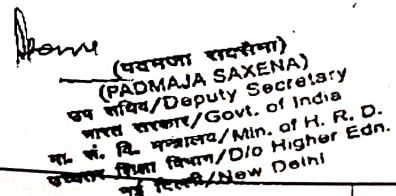 (पदमजा सक्सेना)
(PADMAJA SAXENA)
उप सचिव/Deputy Secretary
भारत सरकार/Govt. of India
मा. सं. वि. मन्त्रालय/Min. of H. R. D.
उच्चतर शिक्षा विभाग/D/o Higher Edn.
नई दिल्ली/New Delhi